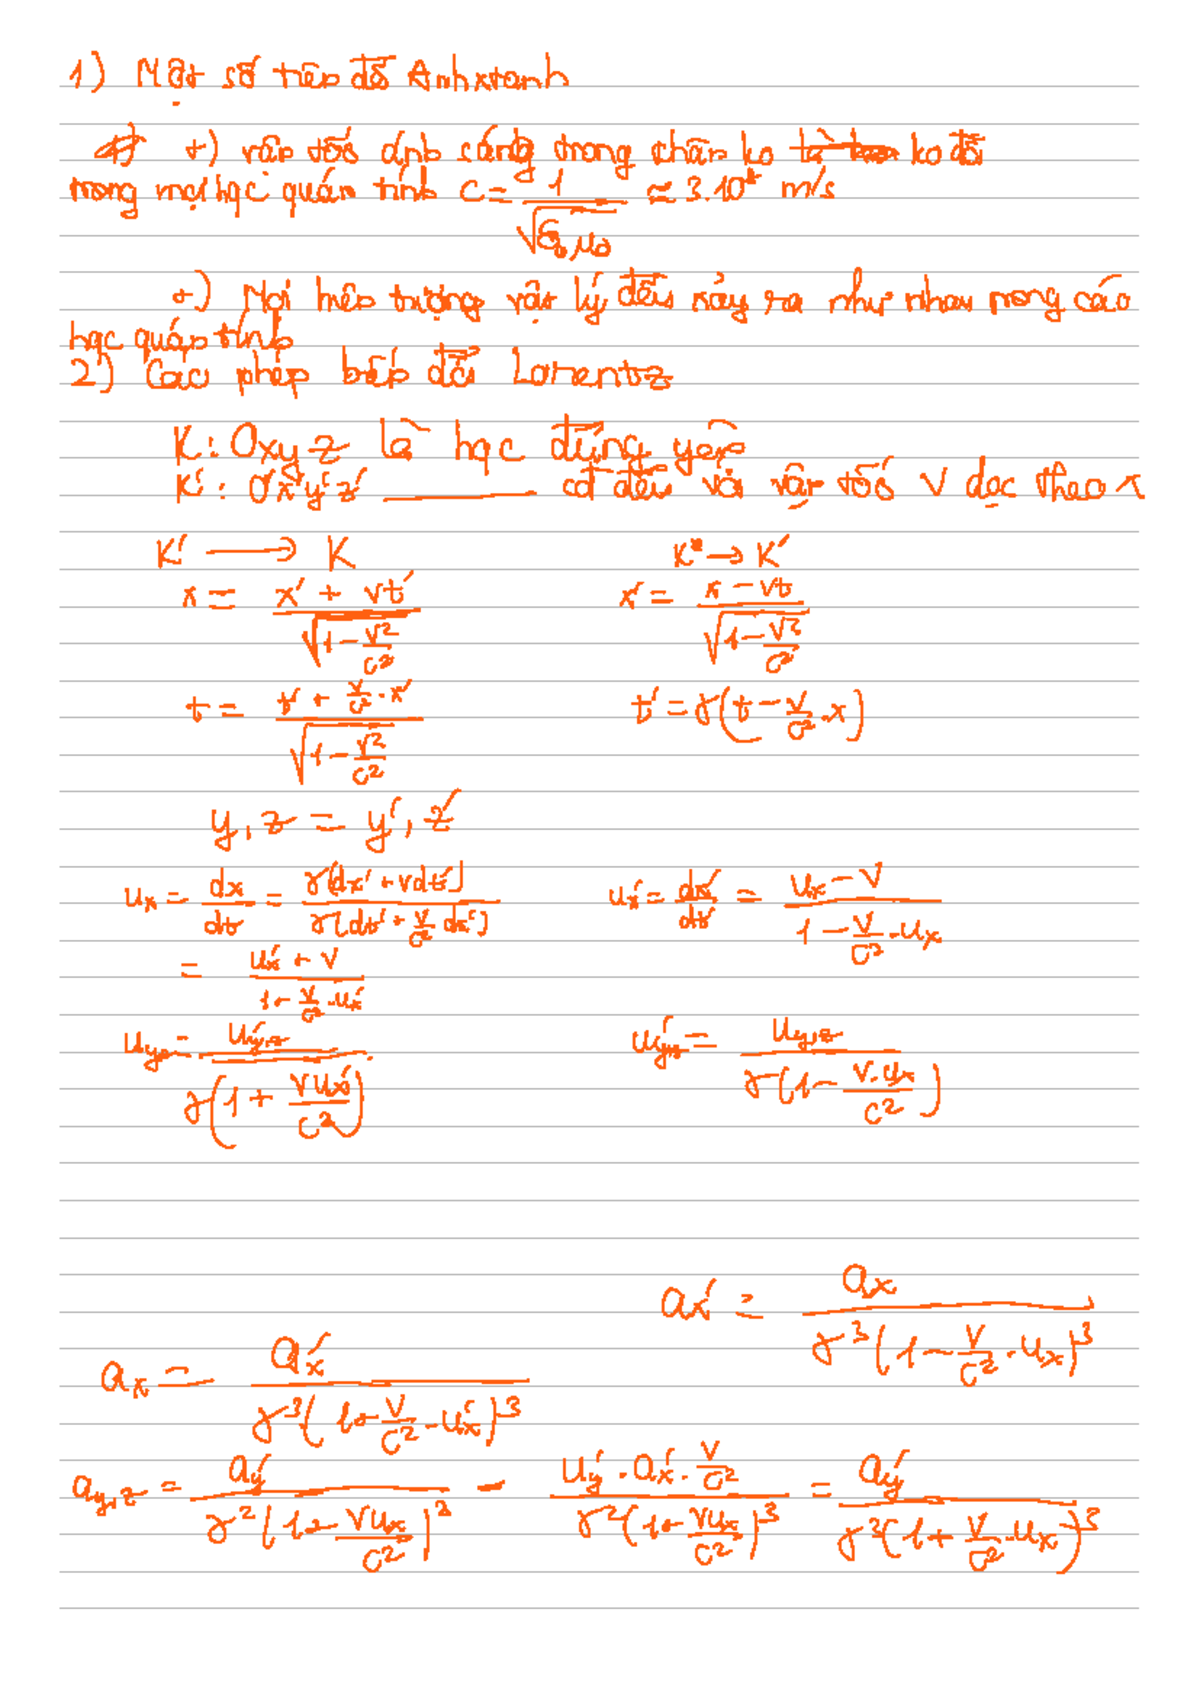 1) Một số tiên đề Anhxtanh
+) vận tốc ánh sáng trong chân ko ko đổi
trong mọi hqc quán tính c = 1/√(ε₀μ₀) ≈ 3.10⁸ m/s
+) Mọi hiện tượng vật lý đều xảy ra như nhau trong các
hqc quán tính
2) Các phép biến đổi Lorentz
K: Oxyz là hqc đứng yên
K': O'x'y'z' ——— cđ đều với vận tốc V dọc theo x
K' → K K → K'
x = (x' + Vt')/√(1 - V²/c²) x' = (x - Vt)/√(1 - V²/c²)
t = (t' + V/c² . x')/√(1 - V²/c²) t' = γ(t - V/c² . x)
y, z = y', z'
uₓ = dx/dt = γ(dx' + Vdt')/γ(dt' + V/c² dx') uₓ' = dx'/dt' = (uₓ - V)/(1 - V/c² . uₓ)
= (uₓ' + V)/(1 + V/c² . uₓ')
u_y,z = u'_y,z/γ(1 + Vuₓ'/c²) u'_y,z = u_y,z/γ(1 - V.uₓ/c²)
aₓ' = aₓ/γ³(1 - V/c² . uₓ)³
aₓ = aₓ'/γ³(1 + V/c² . uₓ')³
a_y,z = a_y'/γ²(1 + Vuₓ/c²)² - u_y' . aₓ' . V/c²/γ²(1 + Vuₓ/c²)³ = a_y'/γ³(1 + V/c² . uₓ)³